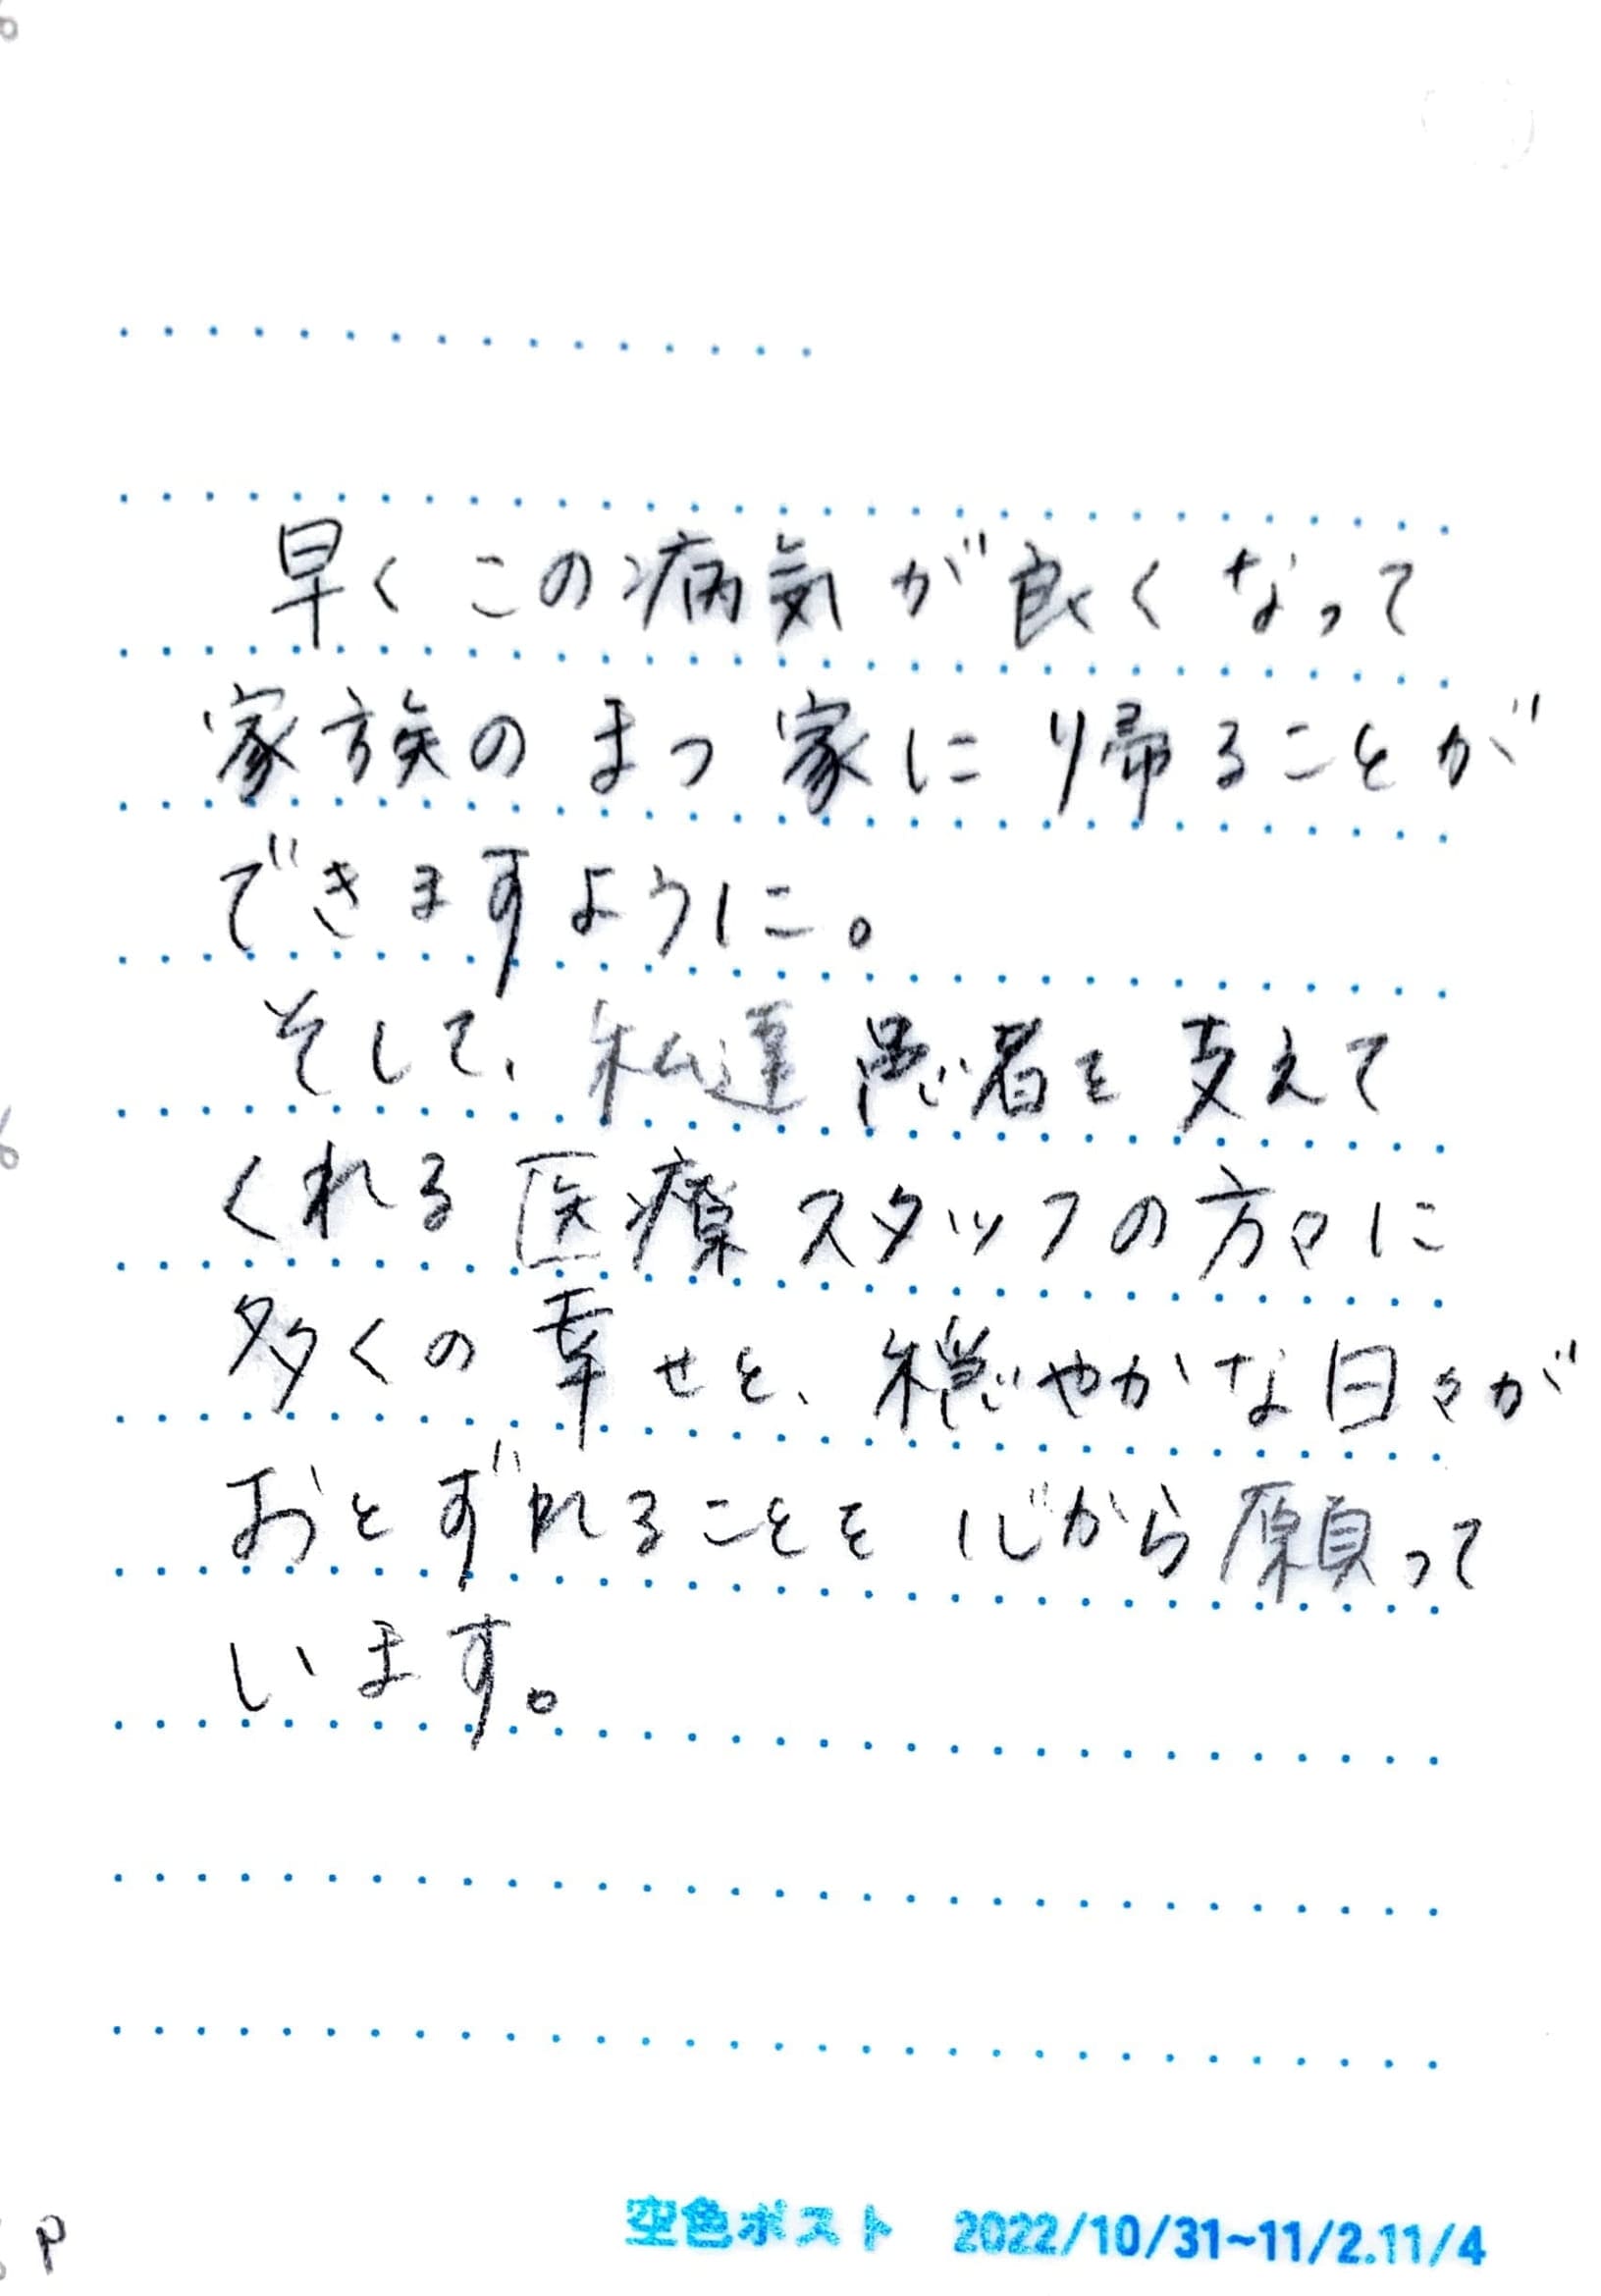 早くこの病気が良くなって
家族のまつ家に帰ることが
できますように。
そして、私達患者を支えて
くれる医療スタッフの方々に
多くの幸せと、穏やかな日々が
おとずれることを心から願って
います。
空色ポスト 2022/10/31~11/2.11/4